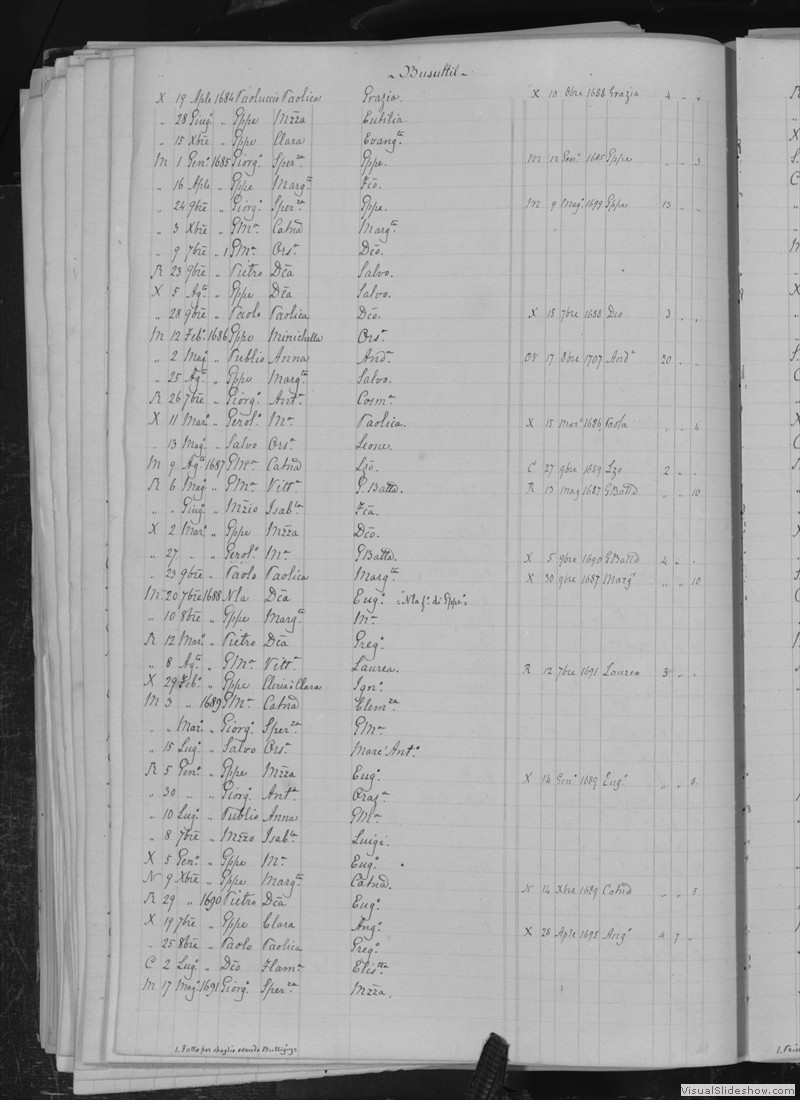 Busuttil
X 19 Aple 1684 Paoluccio Paolica Grazia. X 10 8bre 1688 Grazia 4 " "
" 28 Giug.o " Gppe Mzza Eutilia.
" 15 Xbre " Gppe Clara Evang.ta
M 1 Gen.o 1685 Giorg.o Sper.za Gppe. M 12 Gen.o 1685 Gppe " " 3
" 16 Aple " Gppe Marg.ta Fco.
" 24 9bre " Giorg.o Sper.za Gppe. M 9 Mag.o 1699 Gppe 13 " "
" 3 Xbre " GM.a Catnd Marg.ta
" 9 7bre " 1 GM.a Ors.a Dco.
R 23 9bre " Pietro Dca Salvo.
X 5 Ag.to " Gppe Dca Salvo.
" 28 9bre " Paolo Paolica Dco. X 15 7bre 1688 Dco 3 " "
M 12 Feb.o 1686 Gppe Minichella Ors.a
" 2 Mag.o " Publio Anna And.a OV 17 8bre 1707 And.a 20 " "
" 25 Ag.to " Gppe Marg.ta Salvo.
R 26 7bre " Giorg.o Ant.a Cosm.a
X 11 Mar.o " Gerol.o M.a Paolica. X 15 Mar.o 1686 Paola " " 4
" 13 Mag.o " Salvo Ors.a Leone.
M 9 Ag.to 1687 GM.a Catnd Lzo. C 27 9bre 1689 Lzo 2 " "
R 6 Mag.o " GM.a Vitt.a G.Batta. R 13 Mag 1687 GBatta " " 10
" " Giug.o " Mzzo Isab.la Fca.
X 2 Mar.o " Gppe Mzza Dco.
" 27 " " Gerol.o M.a GBatta. X 5 9bre 1690 GBatta 4 " "
" 23 9bre " Paolo Paolica Marg.ta X 30 9bre 1687 Marg.a " " 10
M 20 7bre 1688 Nla Dca Eug.o =Nla f.o di Gppe=
" 10 8bre " Gppe Marg.ta M.a
R 12 Mar.o " Pietro Dca Greg.o
" 8 Ag.to " GM.a Vitt.a Laurea. R 12 7bre 1691 Laurea 3 " "
X 29 Feb.o " Gppe Cleria=Clara Ign.o
M 3 " 1689 GM.a Catnd Clem.za
" " Mar.o " Giorg.o Sper.za GM.a
" 15 Lug.o " Salvo Ors.a Marc'Ant.o
R 5 Gen.o " Gppe Mzza Eug.o X 14 Gen.o 1689 Eug.o " " 8
" 30 " " Giorg.o Ant.a Oraz.a
" 10 Lug.o " Publio Anna GM.a
" 8 7bre " Mzzo Isab.la Luigi.
X 5 Gen.o " Gppe M.a Eug.o
N 9 Xbre " Gppe Marg.ta Catnd. N 14 Xbre 1689 Catnd " " 5
R 29 " 1690 Pietro Dca Eug.o
X 19 7bre " Gppe Clara Ang.o X 28 Aple 1695 Ang.o 4 7 "
" 25 8bre " Paolo Paolica Greg.o
C 2 Lug.o " Dco. Flam.a Elis.tta
M 17 Mag.o 1691 Giorg.o Sper.za Mzza.
1. Fatto per sbaglio essendo Buttigieg
VisualSlideshow.com